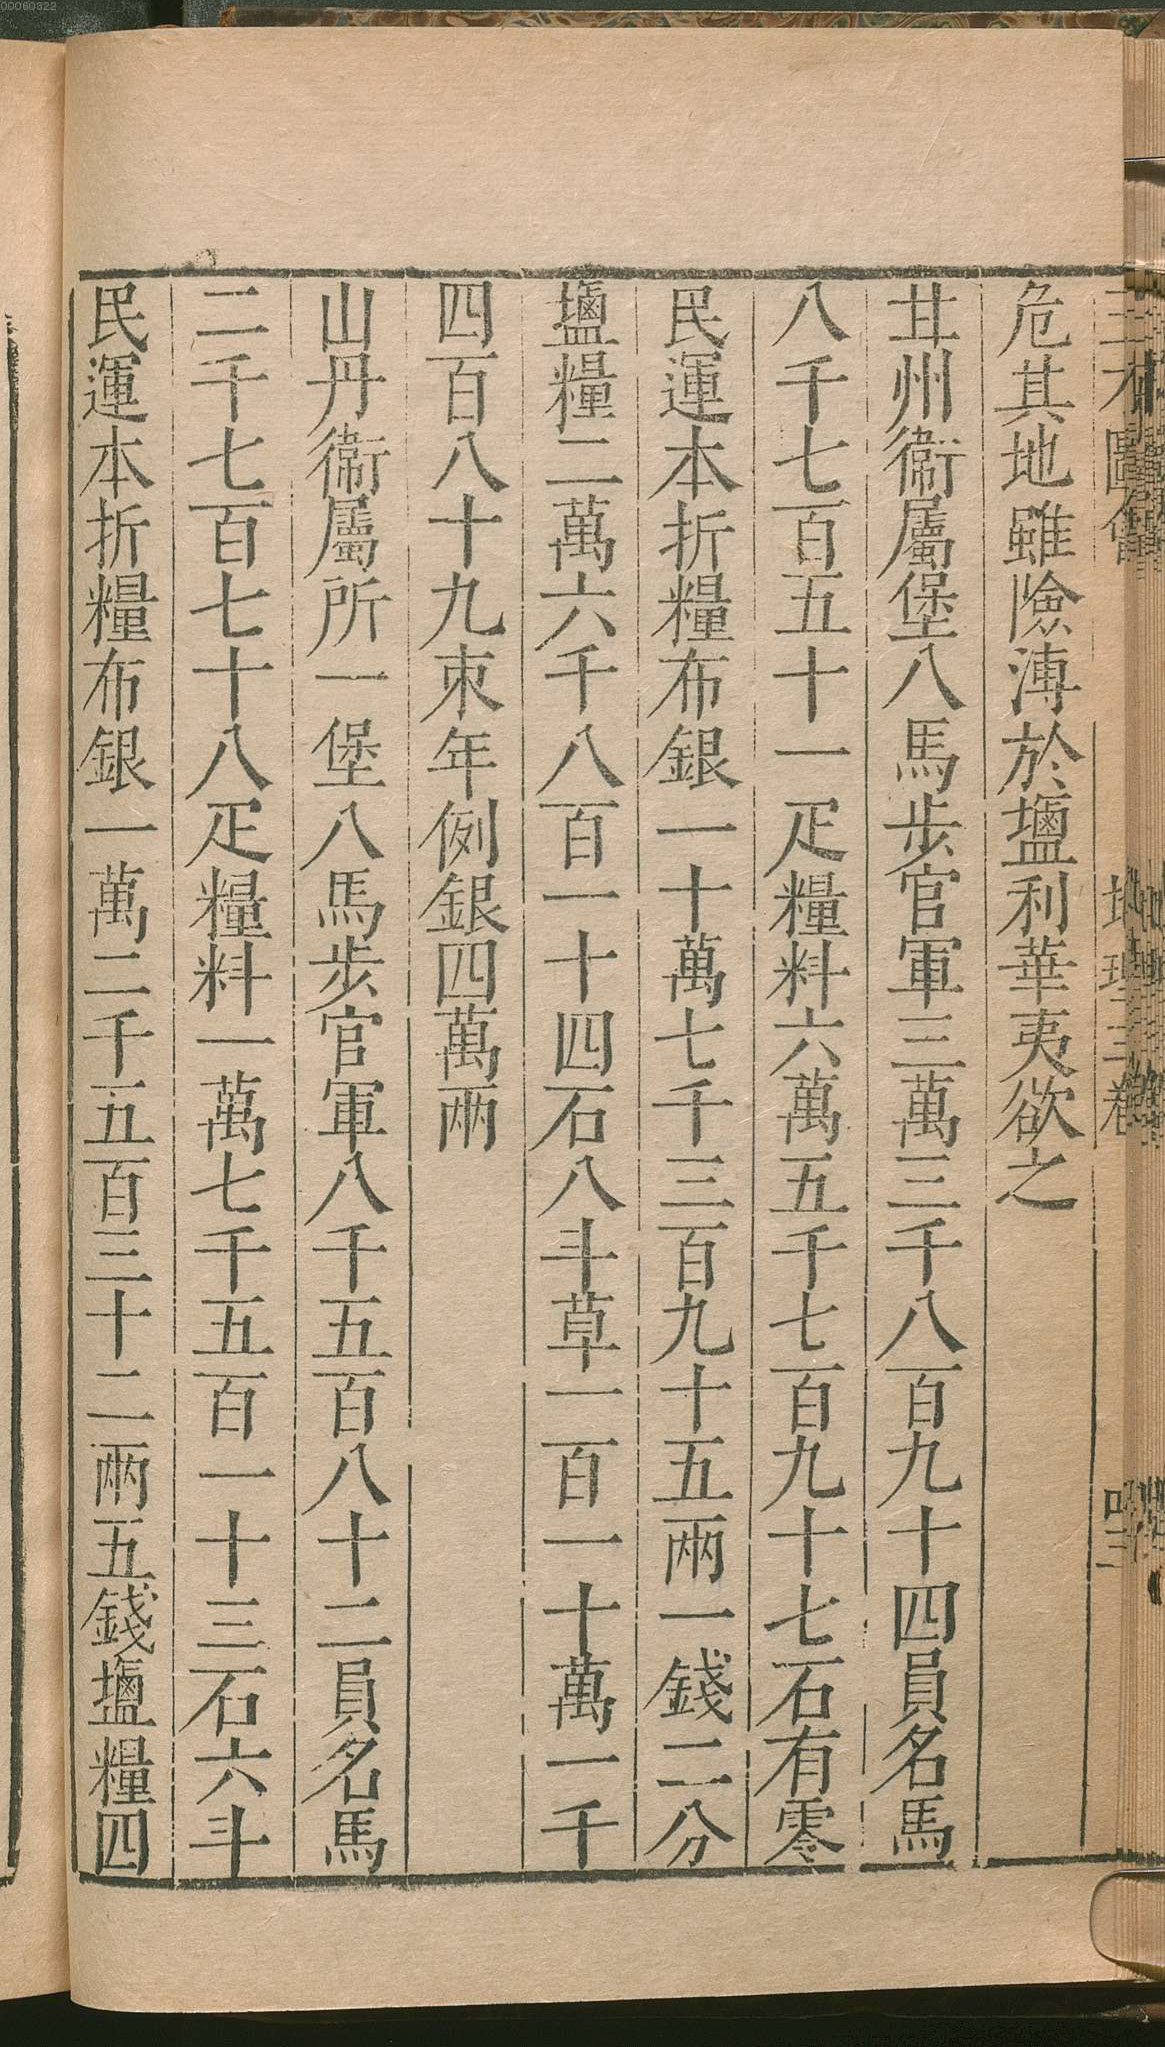 00060322
三才圖會 地理三卷
危其地雖險漙於鹽利華夷欲之
甘州衛屬堡八馬步官軍三萬三千八百九十四員名馬
八千七百五十一疋糧料六萬五千七百九十七石有零
民運本折糧布銀一十萬七千三百九十五兩一錢二分
鹽糧二萬六千八百一十四石八斗草一百一十萬一千
四百八十九束年例銀四萬兩
山丹衛屬所一堡八馬步官軍八千五百八十二員名馬
二千七百七十八疋糧料一萬七千五百一十三石六斗
民運本折糧布銀一萬二千五百三十二兩五錢鹽糧四